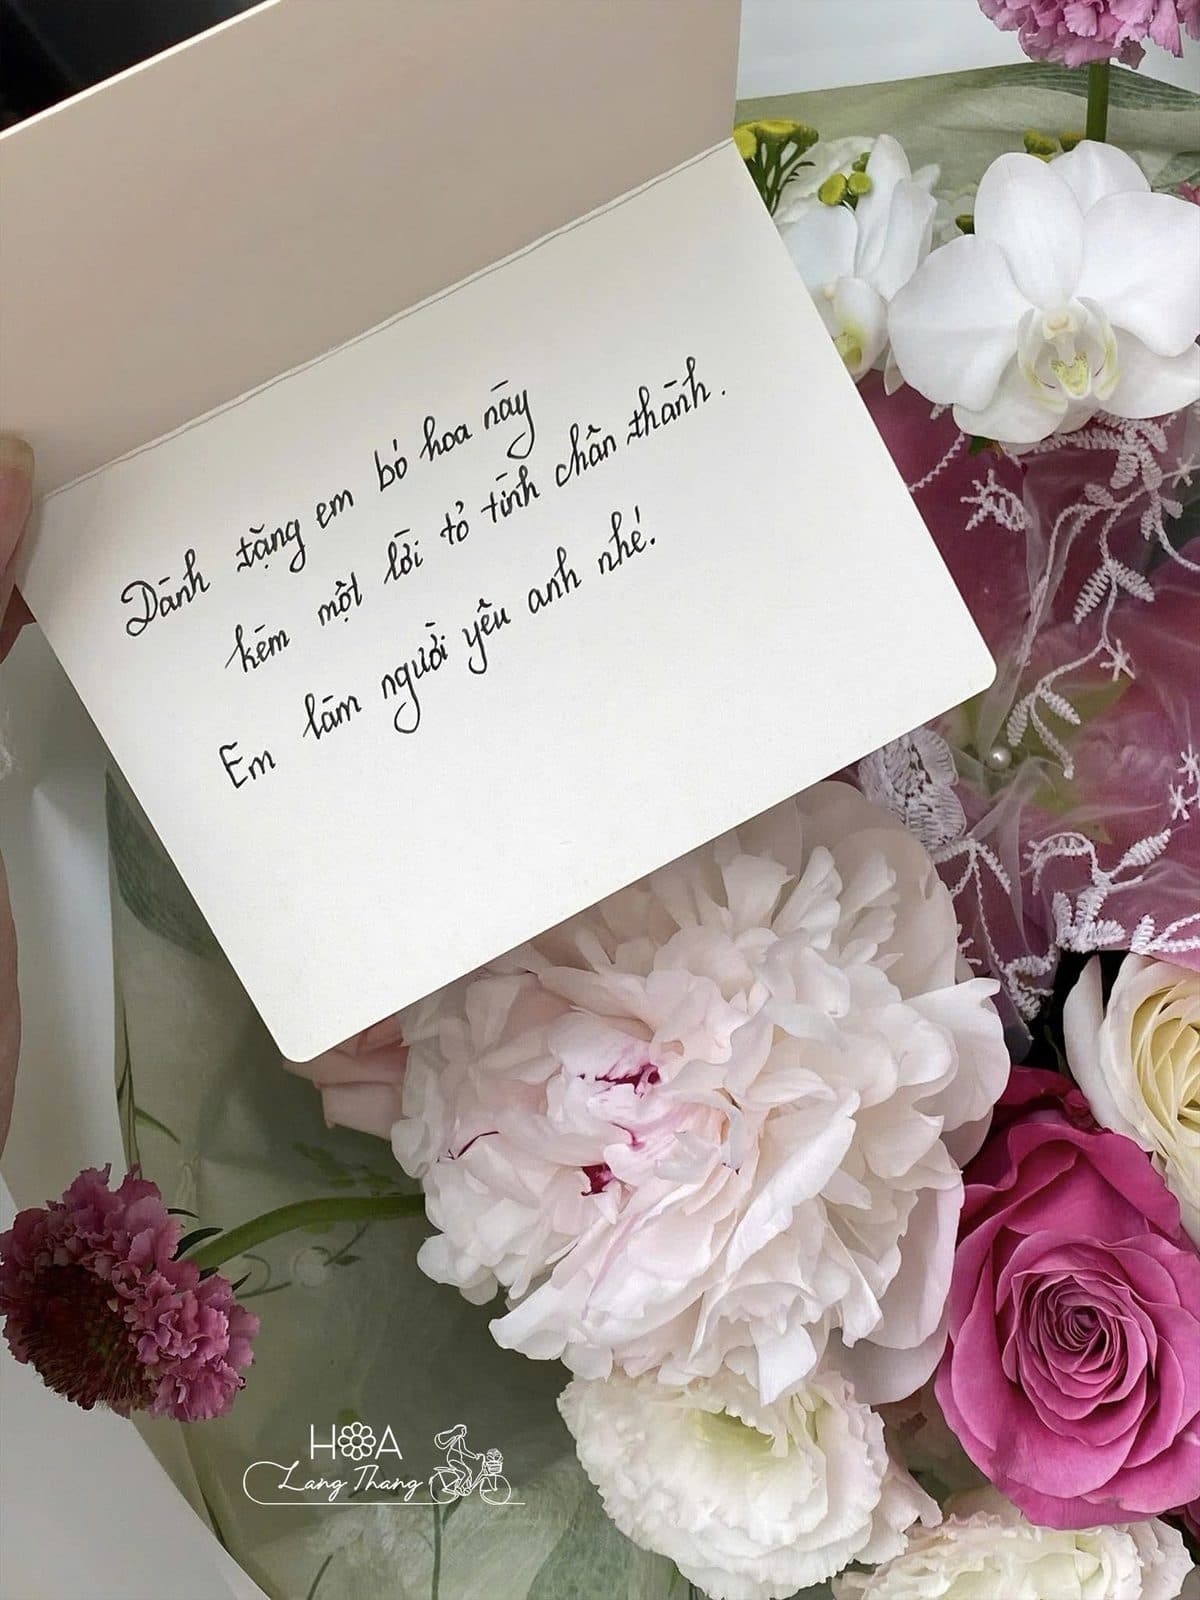 Dành tặng em bó hoa này
kèm một lời tỏ tình chân thành.
Em làm người yêu anh nhé.
HOA
Lang Thang